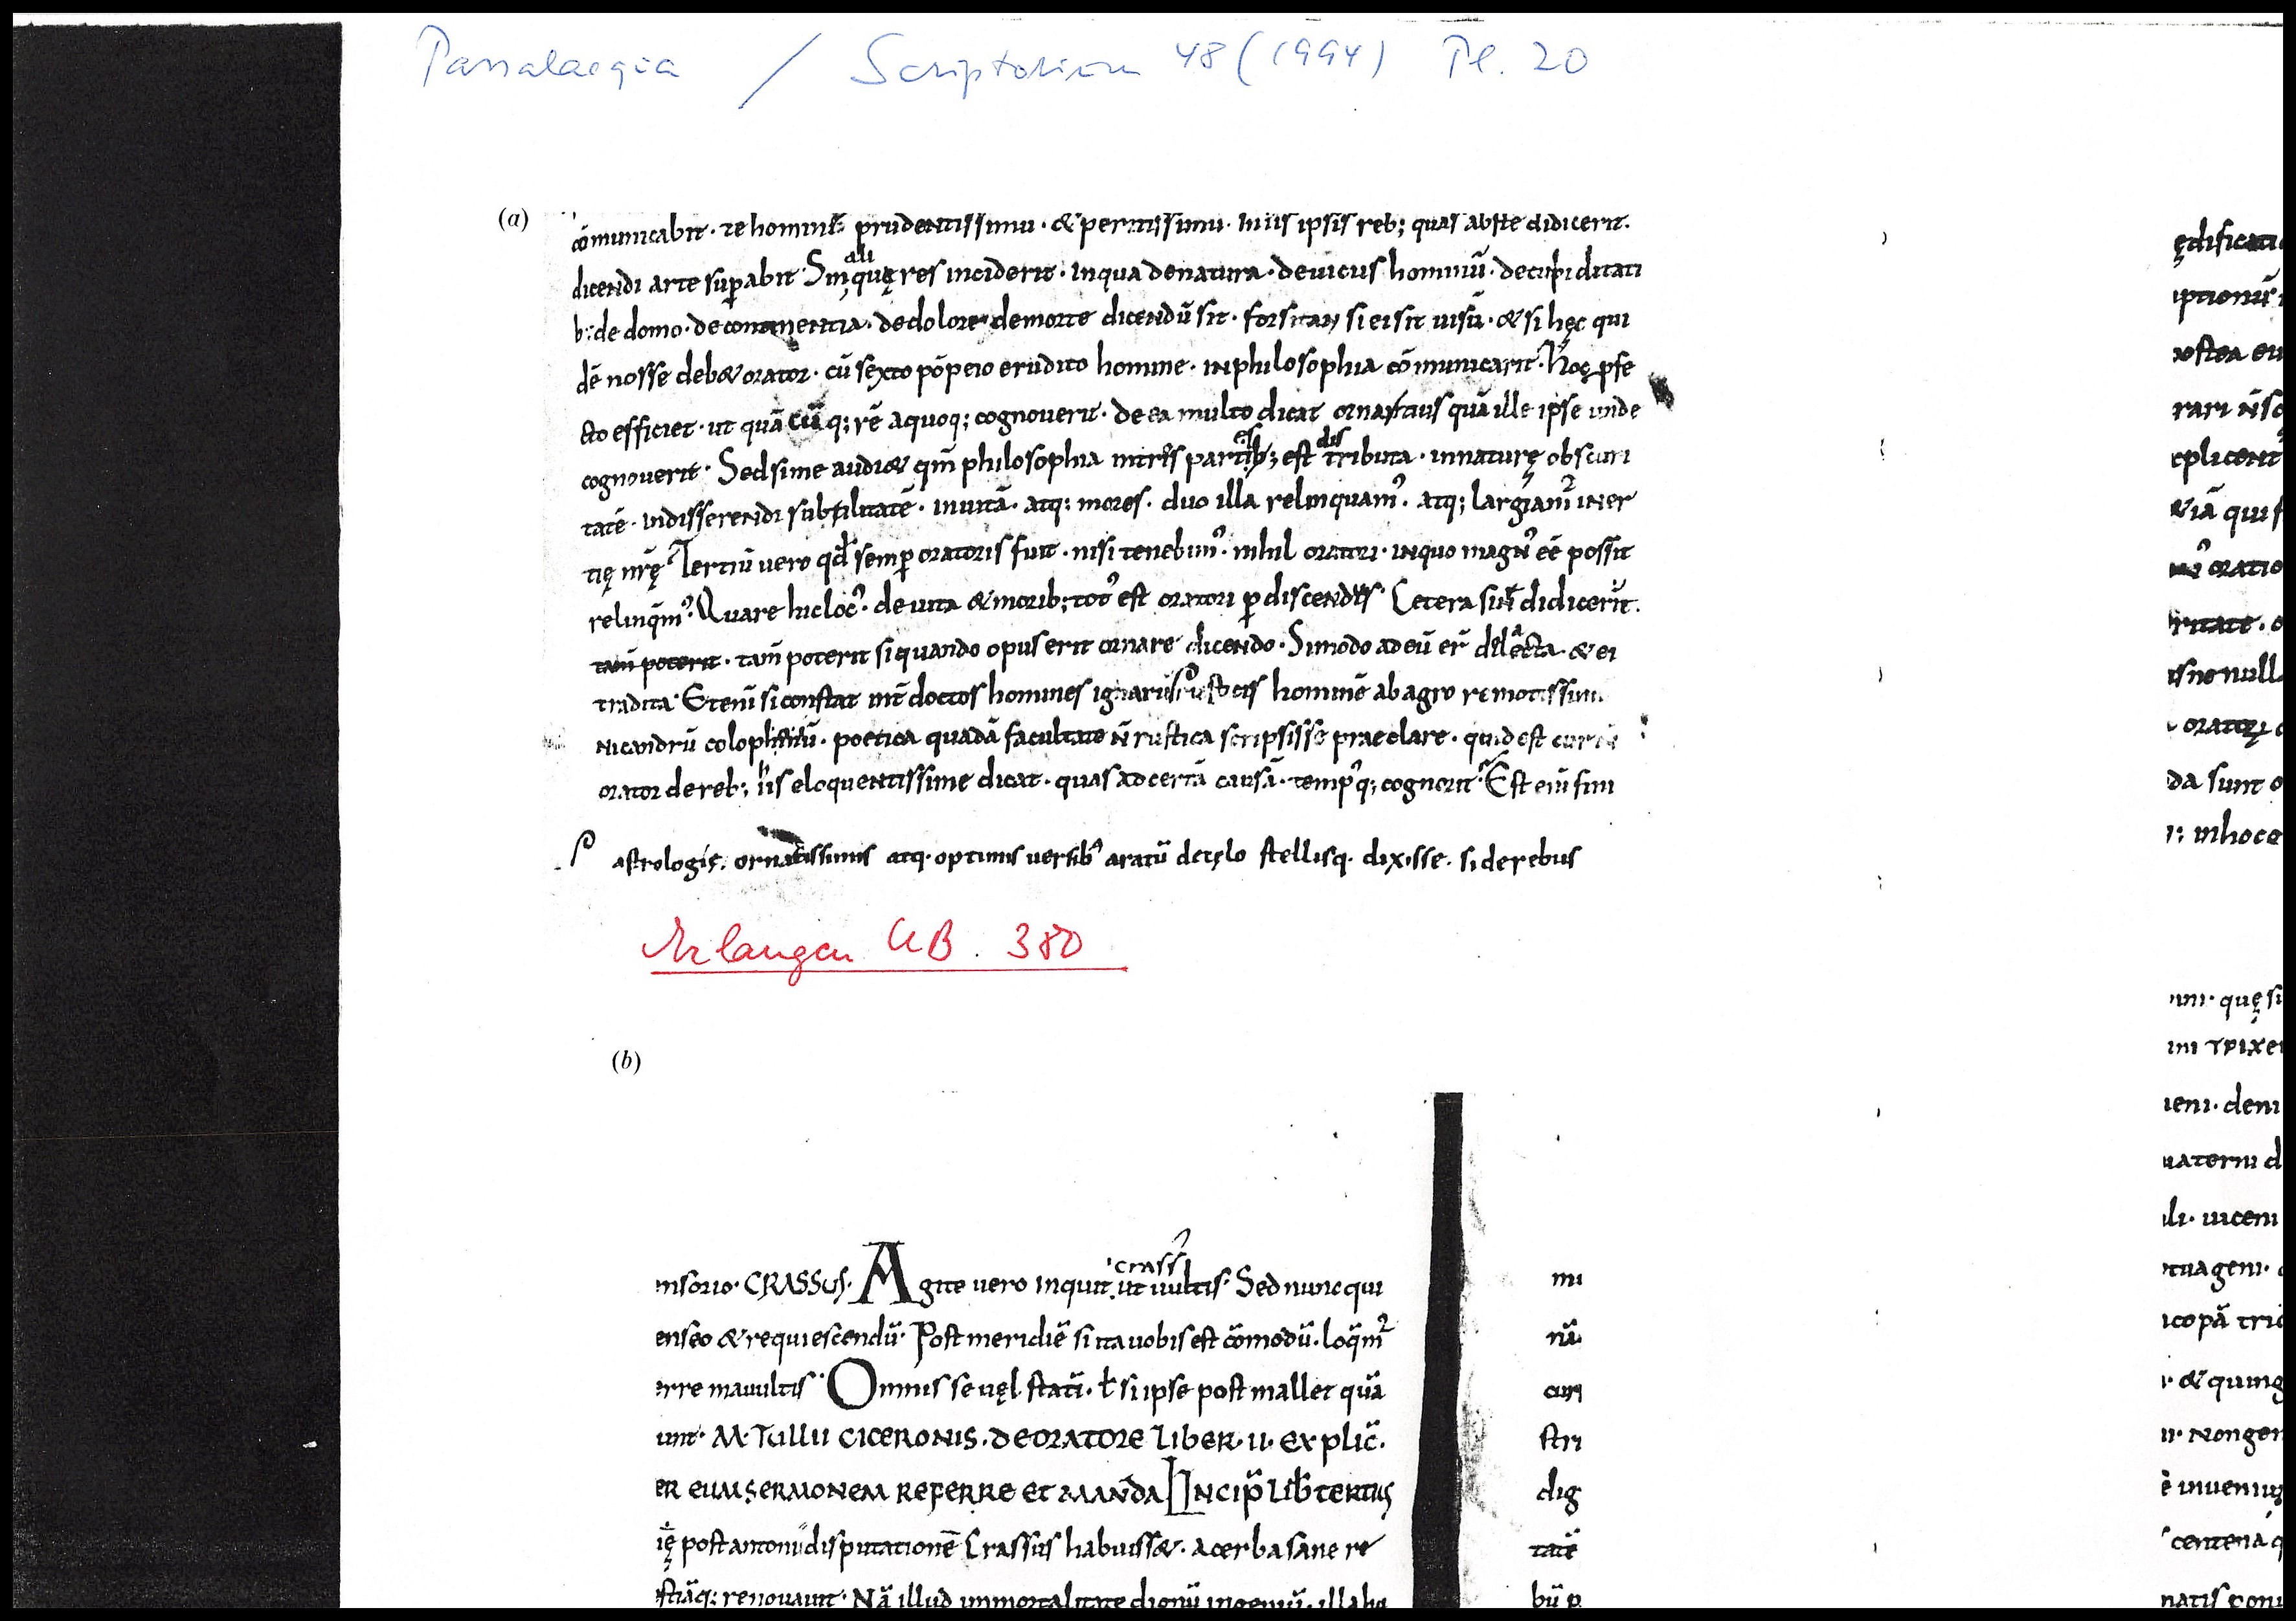 Passalacqua / Scriptorium 48 (1994) Pl. 20
(a)
cōmunicabit · prudentissimū · & peritissimū · in iis ipsis reb; quas abste didicerit ·
dicendi arte suꝑabit · Sin quę res inciderit · inqua denatura · deuiciis hominū · decupiditati
b; de domo · decontinentia · dedolore · demorte dicendū sit · forsitan si ei sit uisū · & si hęc qui
dē nosse deb& orator · cū sexto pōpeio erudito homine · inphilosophia cōmunicarit · Hoc ꝓfe
cto efficiet · ut quā cū q; rē aquoq; cognouerit · de ea multo dicat ornatius quā ille ipse unde
cognouerit · Sed si me audi& qm̄ philosophia est tributa · innaturę obscuri
tatē · indisserendi subtilitatē · inuitā · atq; mores · duo illa relinquam᾿ · atq; largiam᾿ iner
tię nr̄ę Tertiū uero qđ semꝑ oratoris fuit · nisi tenebim᾿ · nihil oratori · inquo magn᾿ eē possit
relinq̄m᾿ · Quare hic loc᾿ · de uita & morib; tot᾿ est oratori ꝑ discend᾿ · Cetera didicerit ·
tam̄ poterit · tam̄ poterit siquando opus erit ornare dicendo · Simodo ad eū er̄ delecta · & ei
tradita · Etenī si constat int̄ doctos homines hominē ab agro remotissim
nicandrū colophoniū · poetica quadā facultate n̄ rustica scripsisse praeclare · quid est cur n
orator de reb; his eloquentissime dicat · quas ad certā causā · temp᾿q; cognorit · Est enī fini
astrologię · ornatissimis atq · optimis uersib᾿ aratū decęlo stellisq · dixisse · si derebus
Erlangen UB. 380
(b)
nsorio · CRASSUS · Agite uero inquit ut uultis · Sed nunc qui
crass᾿
enseo & requiescendū · Post meridiē si ita uobis est cōmodū · loq̄m᾿
erre mauultis · Omnis se uęl statī · ł si ipse post mallet quā
unt · M · TULLII CICERONIS · DE ORATORE LIBER · II · EXPLIC̄ ·
ER EUM SERMONEM REFERRE ET MANDA INCIP̄ LIB̄ TERTIUS
ię post antonii disputationē Crassus habuiss& · acerba sane re
stiāq; renouauit · Nā illud inmortalitate dignū ingeniū · illa hu
mi
nū
curi
stri
dig
tatē
bū p
ędificati
iptionū
ostea eu
rari n̄ so
eplicent
& iā qui f
oratio
ritate · o
is ne null
oratorę
da sunt o
inhoce
imi · quę si
imi τρixe
ieni · deni
uaterni d
ili · uiceni
ntuageni ·
icopā tric
r & quing
ii · Nongen
ē inueniu
centena q
natis poni